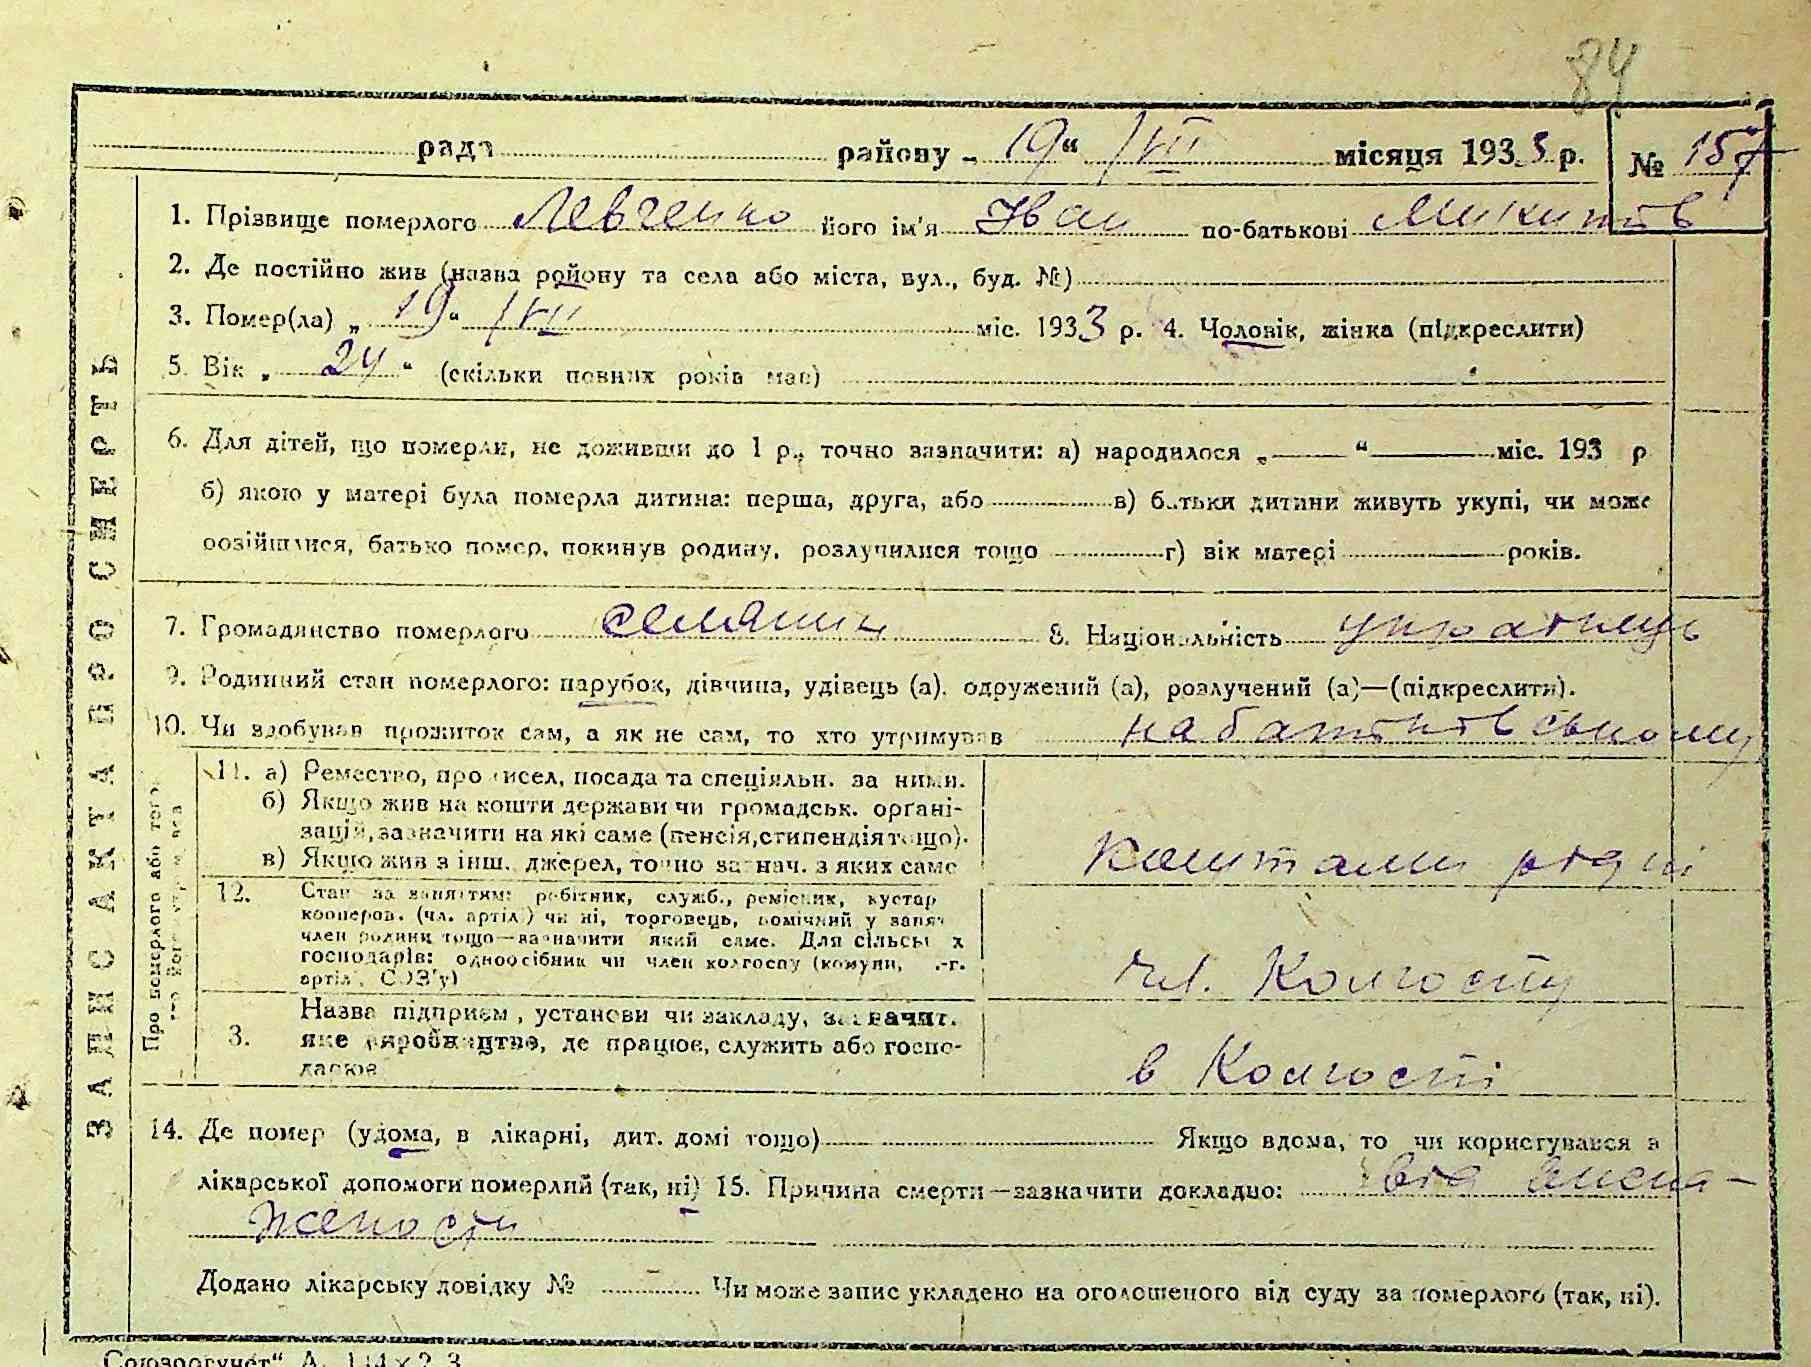 84
рада районy „ 19 “ /VII місяця 1933 р. № 157
1. Прізвище померлого Левченко його ім'я Іван по-батькові Микитів
2. Де постійно жив (назва району та села або міста, вул., буд. №)
3. Помер(ла) „ 19 “ /VII міс. 1933 р. 4. Чоловік, жінка (підкреслити)
5. Вік „ 24 “ (скільки повних років мав)
6. Для дітей, що померли, не доживши до 1 р., точно зазначити: а) народилося „ — “ — міс. 193 р
б) якою у матері була померла дитина: перша, друга, або в) батьки дитини живуть укупі, чи може
розійшлися, батько помер, покинув родину, розлучилися тощо г) вік матері років.
7. Громадянство померлого селянин 8. Національність українець
9. Родинний стан померлого: парубок, дівчина, удівець (а), одружений (а), розлучений (а)—(підкреслити).
10. Чи здобував прожиток сам, а як не сам, то хто утримував на батьківському
11. а) Ремество, промисел, посада та спеціяльн. за ними.
б) Якщо жив на кошти держави чи громадськ. органі-
зацій, зазначити на які саме (пенсія, стипендія тощо).
в) Якщо жив з інш. джерел, точно зазнач. з яких саме
коштами рідні
12. Стан за заняттям: робітник, служб., ремісник, кустар
коопéров. (чл. артілі) чи ні, торговець, помічний у занят
член родини тощо—зазначити який саме. Для сільськ х
господарів: одноосібник чи член колгоспу (комуни, с.-г.
артілі, СОЗ'у)
чл. Колгоспу
3. Назва підприєм., установи чи закладу, зазначит.
яке виробництво, де працює, служить або госпо-
дарює
в Колгоспі
14. Де помер (удома, в лікарні, дит. домі тощо) Якщо вдома, то чи користувався з
лікарської допомоги померлий (так, ні) 15. Причина смерти—зазначити докладно: від висна-
жености
Додано лікарську довідку № Чи може запис укладено на оголошеного від суду за померлого (так, ні).
ЗАПИС АКТА ПРО СМЕРТЬ
Про померлого або того,
хто його утримував
Союзоргучет“ А.